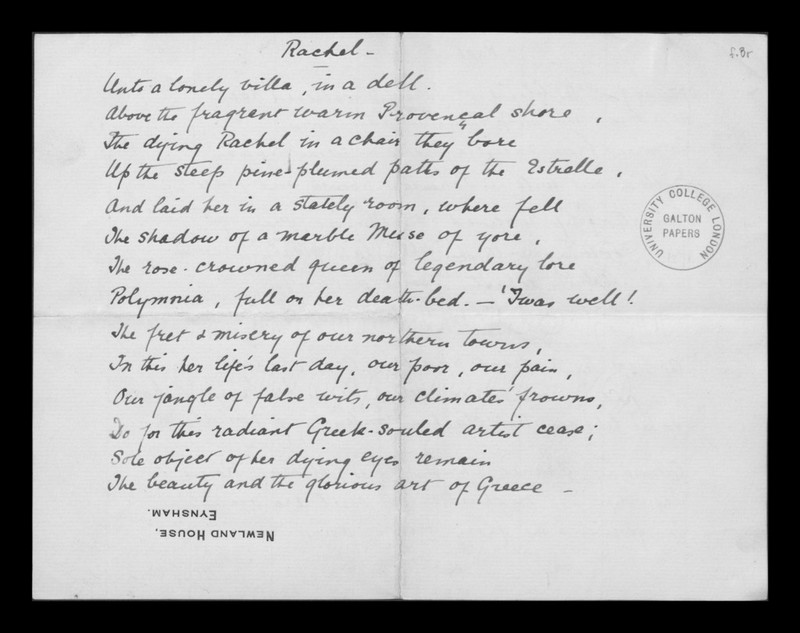 Rachel -
f.8r
Unto a lonely villa, in a dell.
Above the fragrant warm Provençal shore,
The dying Rachel in a chair they bore
Up the steep pine-plumed paths of the Estrelle,
And laid her in a stately room, where fell
The shadow of a marble Muse of yore,
The rose-crowned queen of legendary lore
Polymnia, full on her death-bed. — 'Twas well!
The fret & misery of our northern towns,
In this her life's last day, our poor, our pain,
Our jangle of false wits, our climates' frowns,
Do for this radiant Greek-souled artist cease;
Sole object of her dying eyes remain
The beauty and the glorious art of Greece -
UNIVERSITY COLLEGE LONDON
GALTON
PAPERS
NEWLAND HOUSE,
EYNSHAM.